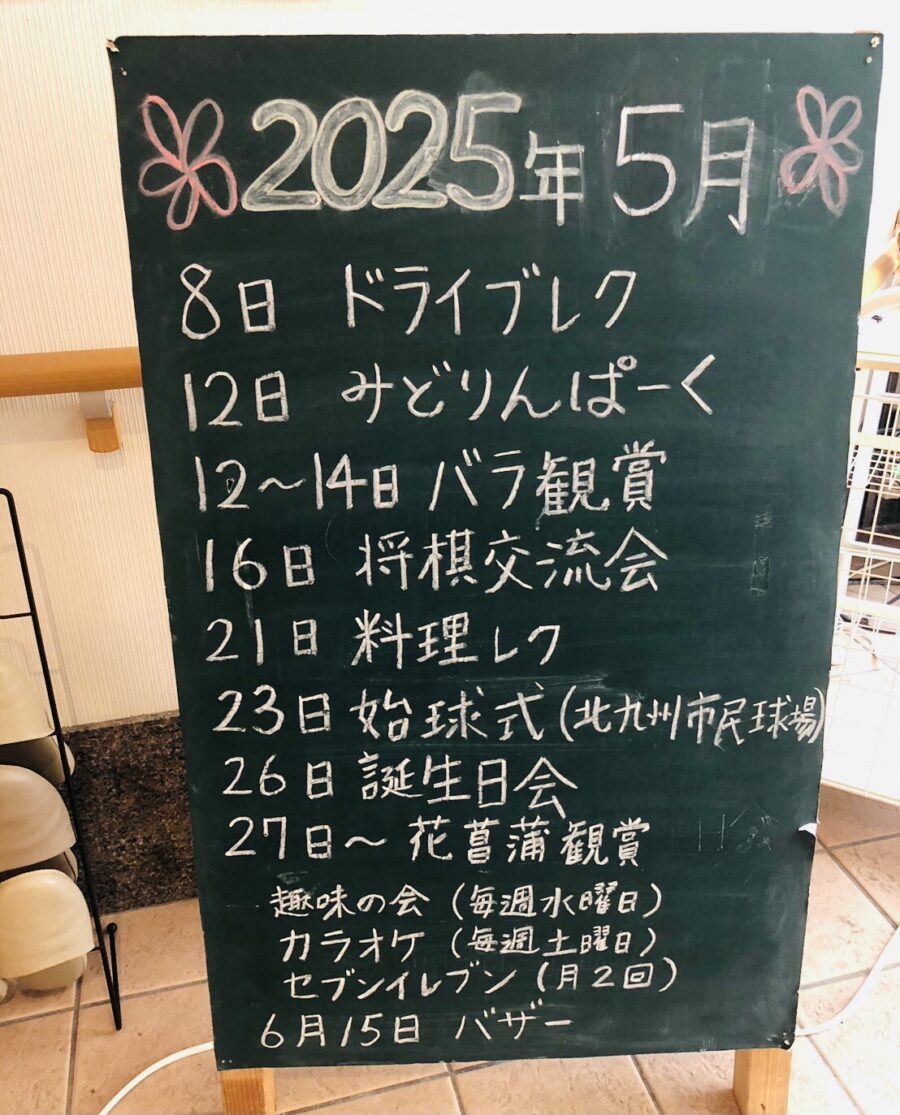 2025年5月
8日 ドライブレク
12日 みどりんぱーく
12～14日 バラ観賞
16日 将棋交流会
21日 料理レク
23日 始球式(北九州市民球場)
26日 誕生日会
27日～ 花菖蒲観賞
趣味の会(毎週水曜日)
カラオケ(毎週土曜日)
セブンイレブン(月2回)
6月15日 バザー